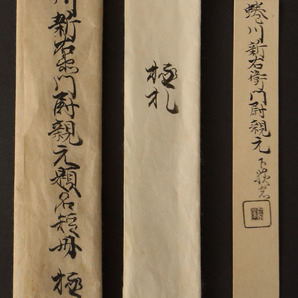 蜷川新右衛門尉親元
極札
川新右衛門尉親元題名短冊 極